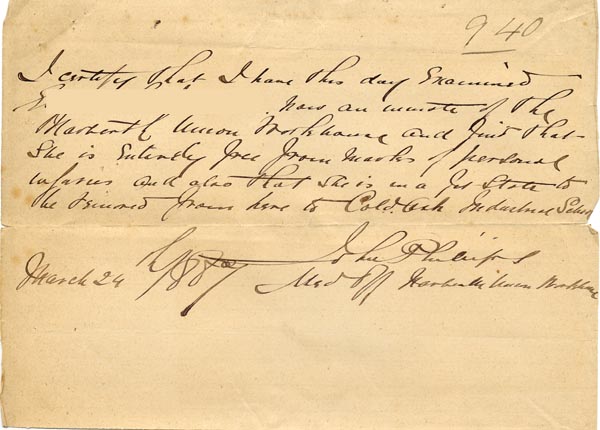 9 40
I certify that I have this day Examined
E. now an inmate of the
Narberth Union Workhouse and find that
She is Entirely free from Marks of personal
injuries and also that She is in a fit State to
be removed from here to Cold Ash Industrial School
John Phillips
March 24 1887 Med Off Narberth Union Workhouse